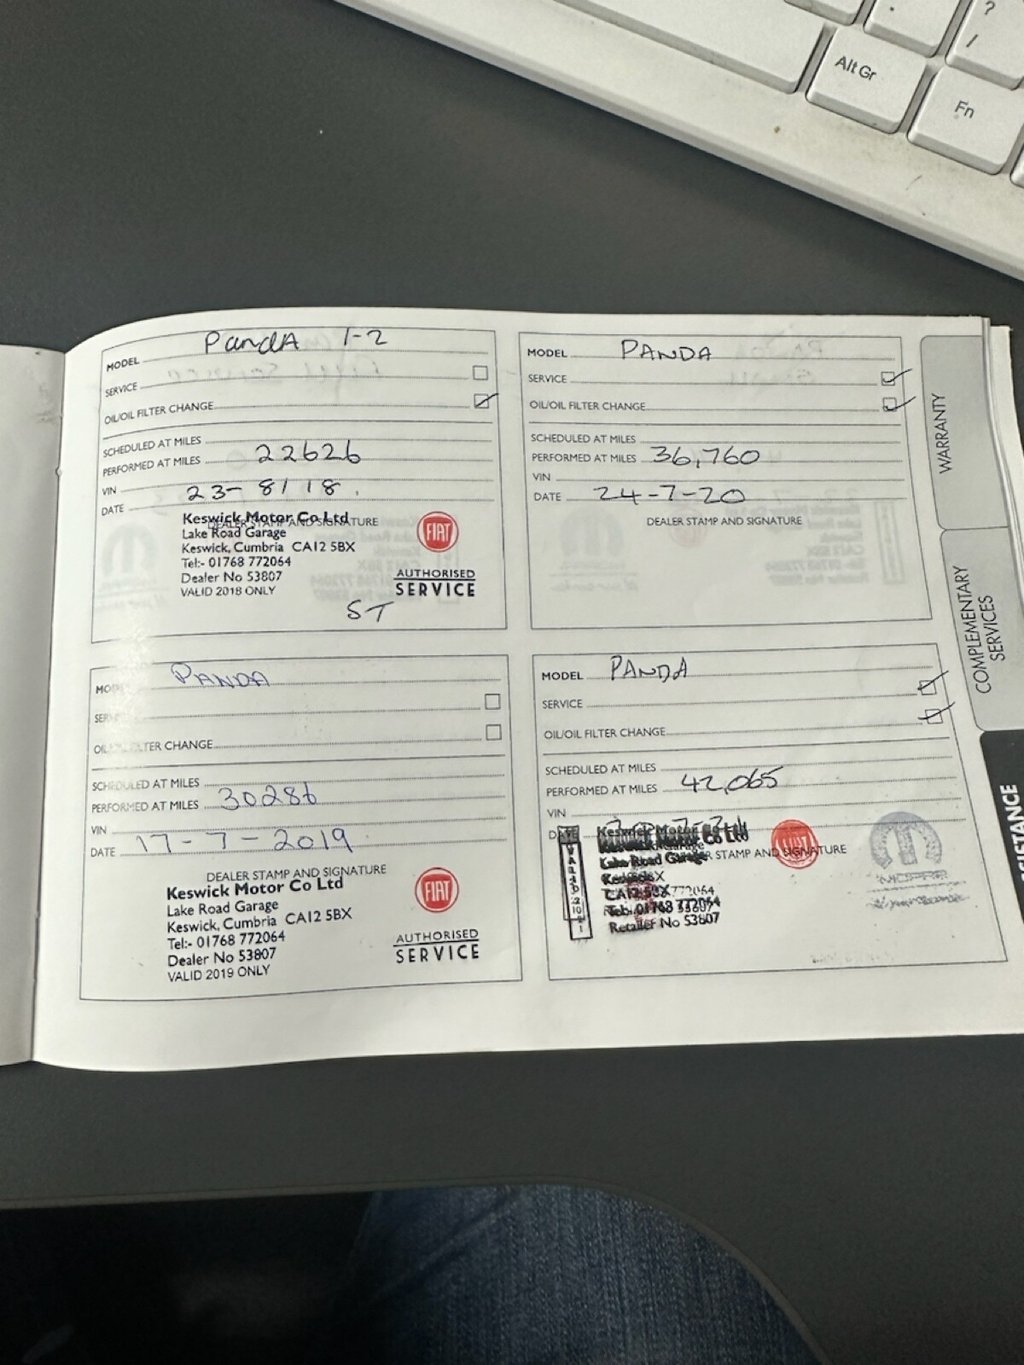 ? /
Alt Gr
Fn
MODEL PandA 1-2
SERVICE
OIL/OIL FILTER CHANGE
SCHEDULED AT MILES
PERFORMED AT MILES 22626
VIN
DATE 23-8/18.
DEALER STAMP AND SIGNATURE
Keswick Motor Co Ltd
Lake Road Garage
Keswick, Cumbria CA12 5BX
Tel:- 01768 772064
Dealer No 53807
VALID 2018 ONLY
FIAT
AUTHORISED
SERVICE
ST
MODEL PANDA
SERVICE
OIL/OIL FILTER CHANGE
SCHEDULED AT MILES
PERFORMED AT MILES 36,760
VIN
DATE 24-7-20
DEALER STAMP AND SIGNATURE
MODEL PANDA
SERVICE
OIL/OIL FILTER CHANGE
SCHEDULED AT MILES
PERFORMED AT MILES 30286
VIN
DATE 17-7-2019
DEALER STAMP AND SIGNATURE
Keswick Motor Co Ltd
Lake Road Garage
Keswick, Cumbria CA12 5BX
Tel:- 01768 772064
Dealer No 53807
VALID 2019 ONLY
FIAT
AUTHORISED
SERVICE
MODEL PANDA
SERVICE
OIL/OIL FILTER CHANGE
SCHEDULED AT MILES
PERFORMED AT MILES 42,065
VIN
STAMP AND SIGNATURE
Keswick Motor Co Ltd
Lake Road Garage
Keswick
CA12 5BX
Tel: 01768 772064
Retailer No 53807
FIAT
MOPAR
WARRANTY
COMPLEMENTARY
SERVICES